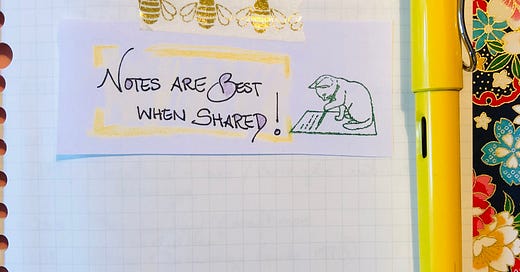 NOTES ARE BEST
WHEN SHARED!